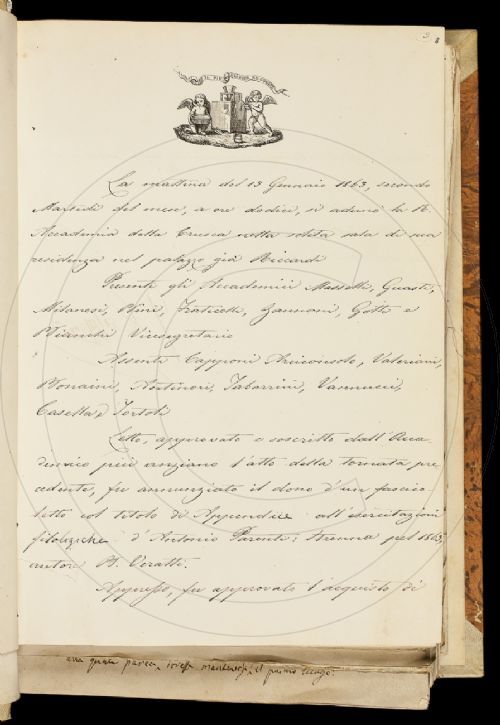 3
IL PIÙ BEL FIOR NE COGLIE
La mattina del 13 Gennaio 1863, secondo
Martedì del mese, a ore dodici, si adunò la R.
Accademia della Crusca nella solita sala di sua
residenza nel palazzo già Riccardi
Presenti gli Accademici Masselli, Guasti,
Milanesi, Bini, Fraticelli, Zannoni, Gotti e
Bianchi Vicesegretario
Assenti Capponi Arciconsolo, Valeriani,
Bonaini, Tabarrini, Vannucci,
Casella e Tortoli
Letto, approvato e soscritto dall'Acca
demico più anziano l'atto della tornata pre
cedente, fu annunziato il dono d'un fascico
letto col titolo di Appendice all'esercitazioni
filologiche d'Antonio Parenti: Strenna pel 1863,
autore B. Veratti.
Appresso, fu approvato l'acquisto di
una il primo luogo.